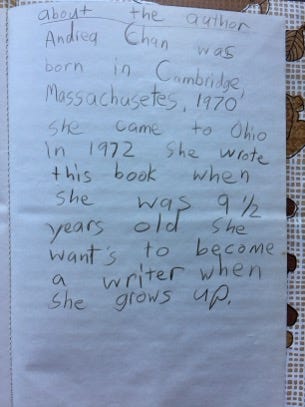 about the author
Andrea Chan was
born in Cambridge,
Massachusetes, 1970
she came to Ohio
in 1972 she wrote
this book when
she was 9 1/2
years old she
want's to become
a writer when
she grows up.